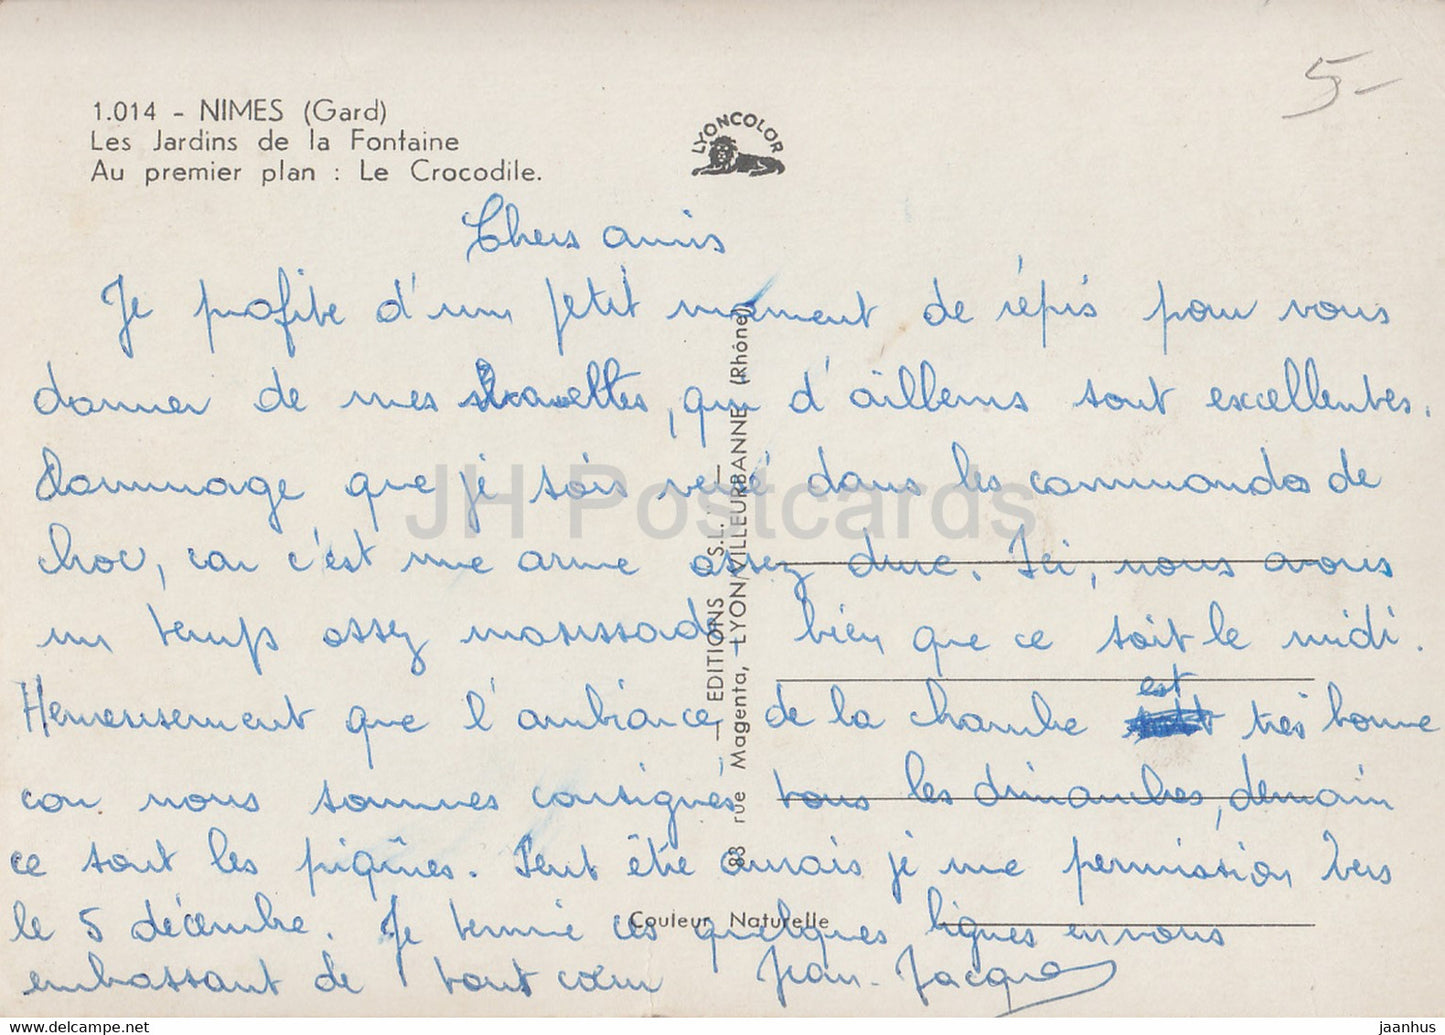 1.014 - NIMES (Gard)
Les Jardins de la Fontaine
Au premier plan : Le Crocodile.
LYONCOLOR
5-
Chers amis
Je profite d'un petit moment de répis pour vous
donner de mes nouvelles, qui d'ailleurs sont excellentes.
Dommage que je sois versé dans les commandos de
choc, car c'est une arme assez dure. Ici, nous avons
un temps assez maussade bien que ce soit le midi.
Heureusement que l'ambiance de la chambre est très bonne
car nous sommes consignés tous les dimanches, demain
ce sont les piqûres. Peut être aurais je une permission vers
le 5 décembre. Je termine ces quelques lignes en vous
embrassant de tout cœur Jean-Jacques
— EDITIONS "S.L." —
83 rue Magenta, LYON/VILLEURBANNE (Rhône)
Couleur Naturelle
JH Postcards
www.jaanhus.com
jaanhus